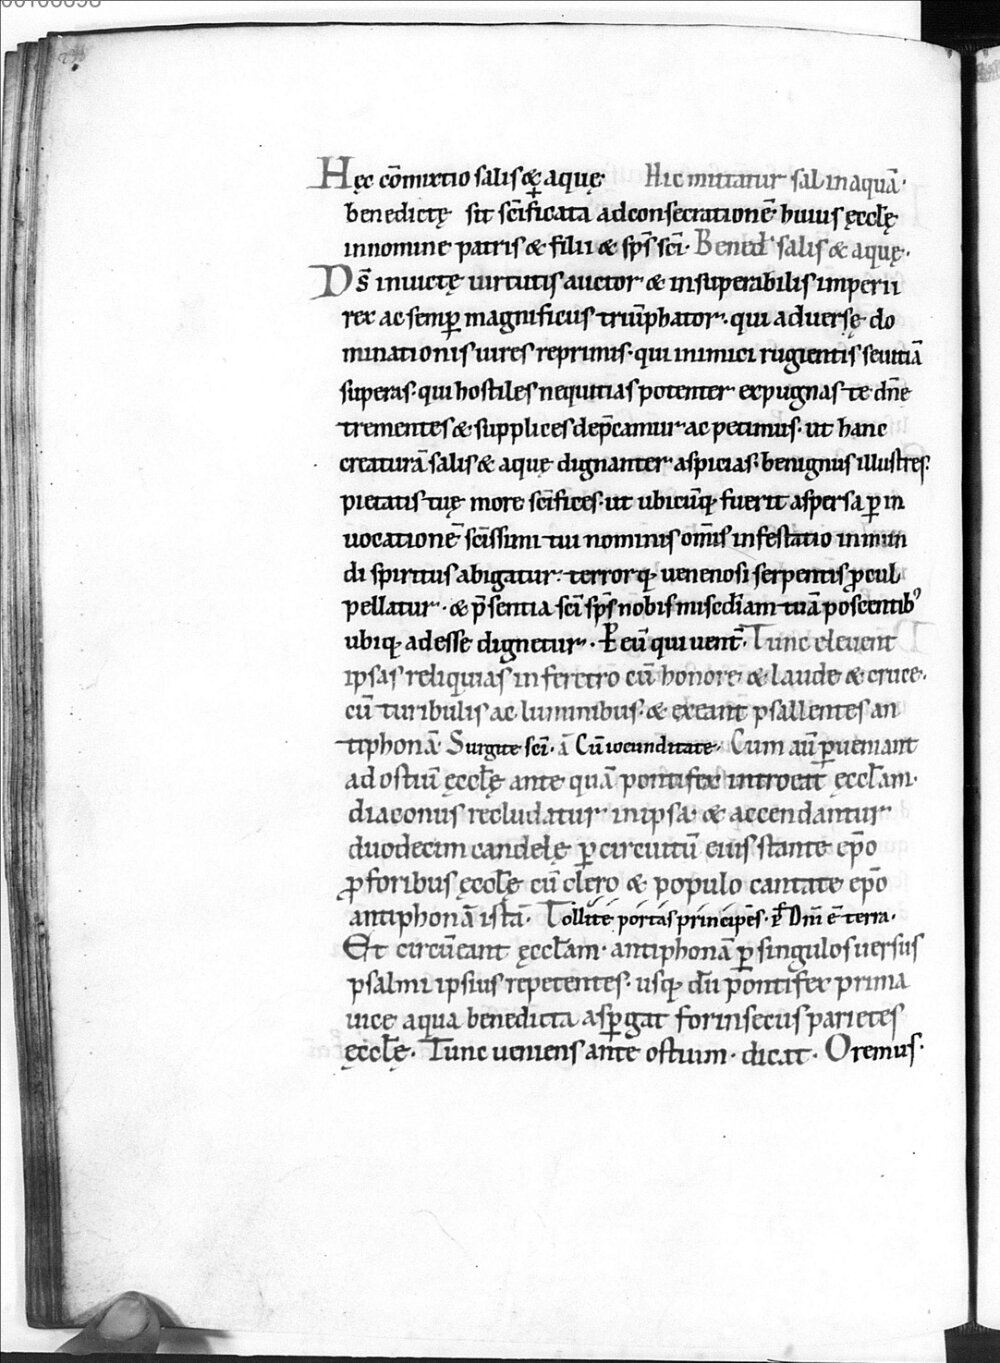 Hęc cōmixtio salis & aquę Hic mittatur sal in aquā.
benedictę sit sc̄ificata ad consecrationē huius ęccl̄ę
in nomine patris & filii & sp̄s sc̄i. Bened̄ salis & aquę.
Ds̄ inuictę uirtutis auctor & insuperabilis imperii
rex ac semꝑ magnificus triūphator. qui aduersę do
minationis uires reprimis. qui inimici rugientis seuitiā
superas. qui hostiles nequitias potenter expugnas te dn̄e
trementes & supplices dep̄camur ac petimus. ut hanc
creaturā salis & aquę dignanter aspicias. benignus illustres.
pietatis tuę more sc̄ifices. ut ubicūq; fuerit aspersa ꝑ in
uocationē sc̄issimi tui nominis om̄is infestatio inmun
di spiritus abigatur. terrorq; uenenosi serpentis ꝓcul
pellatur. & p̄sentia sc̄i sp̄s nobis misc̄diam tuā poscentib;
ubiq; adesse dignetur. P̄ eū qui uent̄. Tunc eleuent
ipsas reliquias in feretro cū honore & laude & cruce.
cū turibulis ac luminibus. & exeant psallentes an
tiphonā Surgite sc̄i. ā Cū iocunditate. Cum aū ꝑueniant
ad ostiū ęccl̄ę ante quā pontifex introeat ęccl̄am.
diaconus recludatur in ipsa. & accendantur
duodecim candelę ꝑ circuitū eius stante ep̄o
ꝓ foribus ęccl̄ę cū clero & populo cantate ep̄o
antiphonā istā. Tollite portas principes. p̄s Dn̄i ē terra.
Et circūeant ęccl̄am. antiphonā ꝑ singulos uersus
psalmi ipsius repetentes. usq; dū pontifex prima
uice aqua benedicta asꝑgat forinsecus parietes
ęccl̄ę. Tunc ueniens ante ostium. dicat. Oremus.